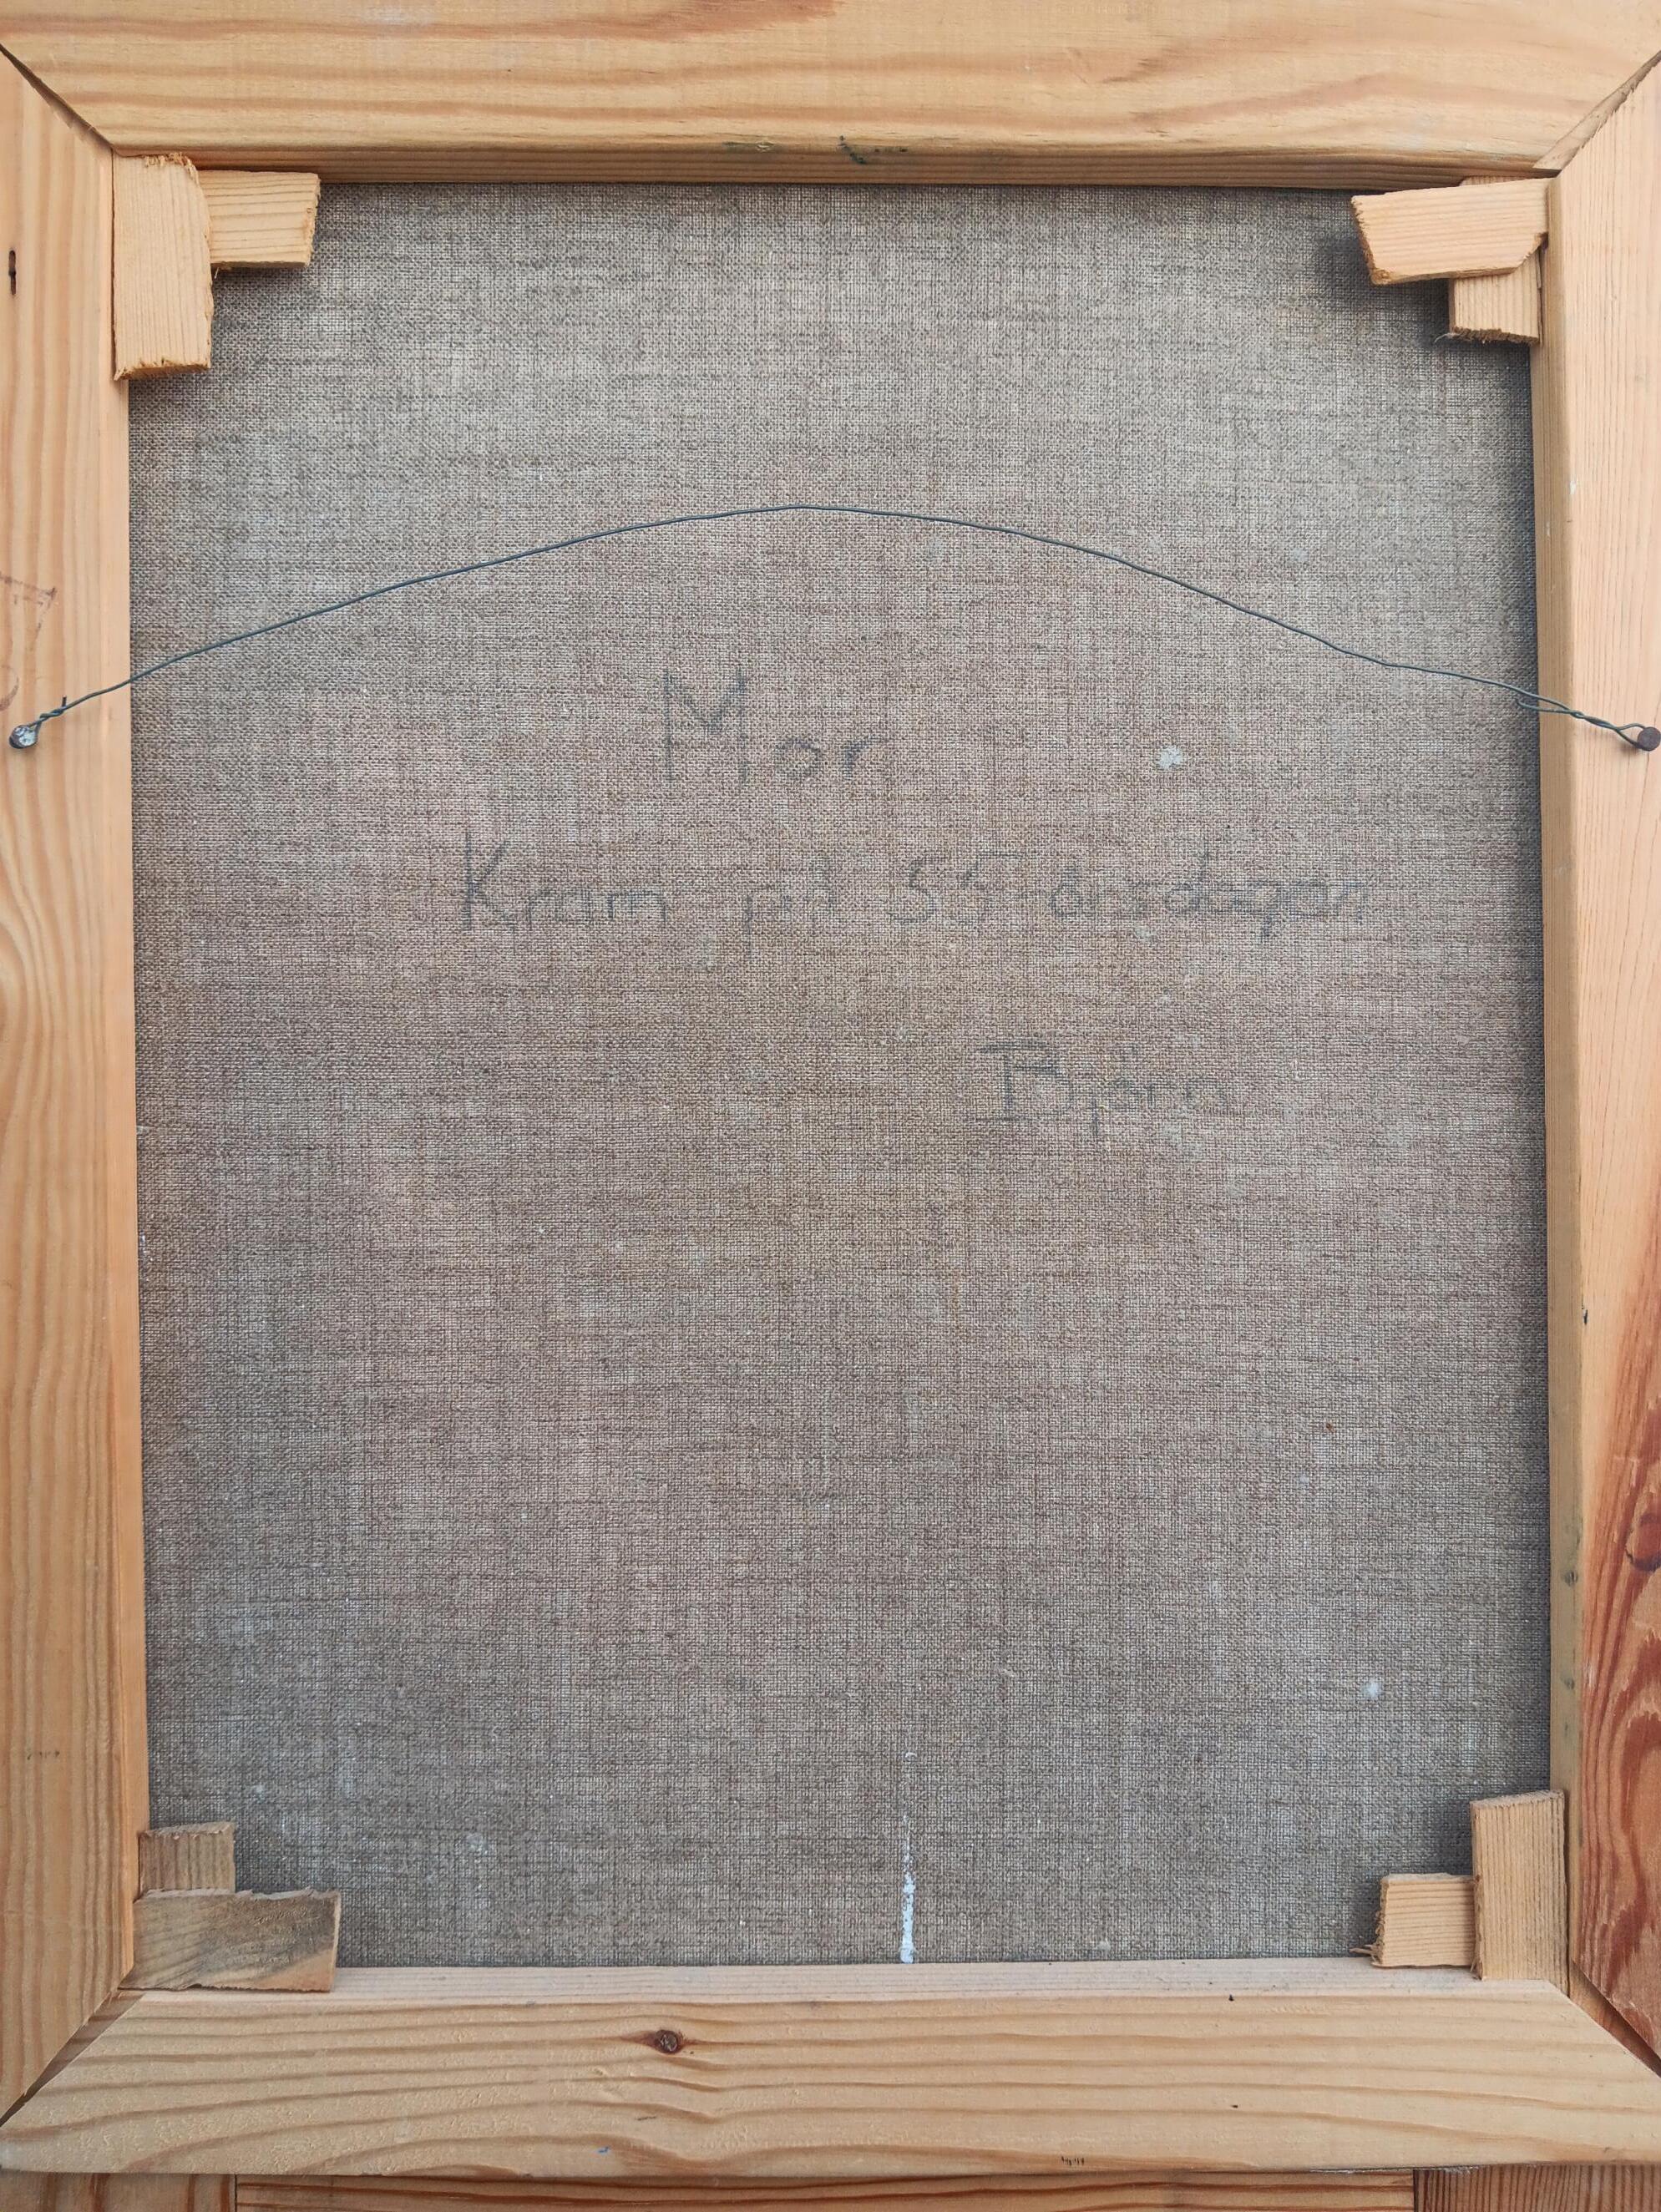 Mor
Kram på 55-årsdagen
Björn